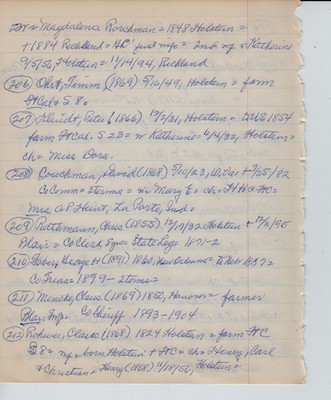 = Magdalena Rorchman = 1848 Holstein =
+ 1884 Richland = HC first wife = 2nd wf = Katherine
9/5/52, Holstein = 12/14/94, Richland
206 Ohrt, Timm (1869) 5/10/49, Holstein = farm
HCal = S 8.
207 Klindt, Peter (1866) 12/2/31, Holstein = to US 1854
farm HCal. S 23 = w Katherine = 6/4/32, Holstein =
ch = Miss Dora.
208 Couchman, David (1868) 5/10/23, = 7/25/82
Co Comm = 2 terms = w Mary E = ch = F H C = HC =
Mrs A P Hunt, La Porte, Ind =
209 Rathmann, Claus (1855) 12/19/32 Holstein + 12/2/95
Blair = Co Clerk 8 yrs = State Legs 1871-2
210 Faber, George H (1891) 1860, New Orleans = to Neb 1887 =
Co Treas 1899 - 2 terms =
211 Mencke, Claus (1869) 1852, Hanover = farmer
Imp = Co Sheriff 1893-1904
212 Rohwer, Claus (1868) 1824 Holstein = farm HC
S 8 = wf = born Holstein + HC = ch = Henry, Carl
& Christian = Henry (1868) 11/18/56, Holstein =